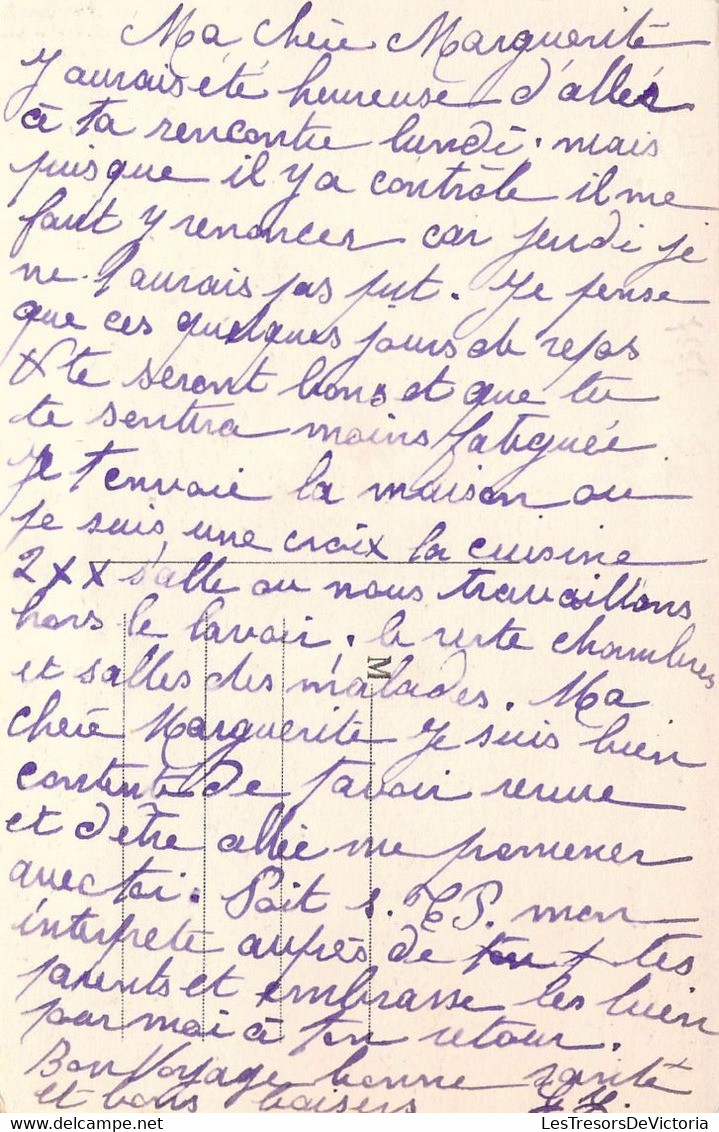 Ma chère Marguerite
J aurais été heureuse d'aller
à ta rencontre lundi. mais
puisque il y a contrôle il me
faut y renoncer car jeudi je
ne l'aurais pas put. Je pense
que ces quelques jours de repos
te seront bons et que tu
te sentira moins fatiguée
Je t envoie la maison ou
je suis une croix la cuisine
2 x x salle ou nous travaillons
hors le lavoir. le reste chambres
et salles des malades. Ma
M
chère Marguerite Je suis bien
contente de t avoir revue
et d être allée me promener
avec toi. Soit s. T. P. mon
interprete auprès de tes
parents et embrasse les bien
pour moi à ton retour.
Bon Voyage bonne santé
et bons baisers
LesTresorsDeVictoria